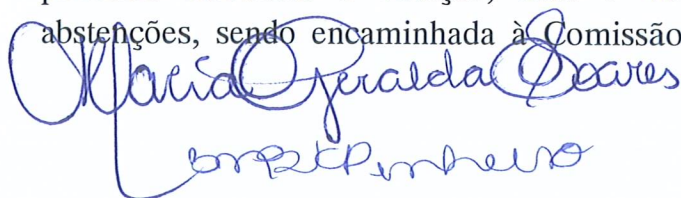 abstenções, sendo encaminhada à Comissão
Maria Geralda Soares
Pinheiro